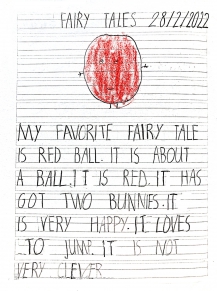 FAIRY TALES 28/2/2022
MY FAVORITE FAIRY TALE
IS RED BALL. IT IS ABOUT
A BALL. IT IS RED. IT HAS
GOT TWO BUNNIES. IT
IS VERY HAPPY. IT LOVES
TO JUMP. IT IS NOT
VERY CLEVER